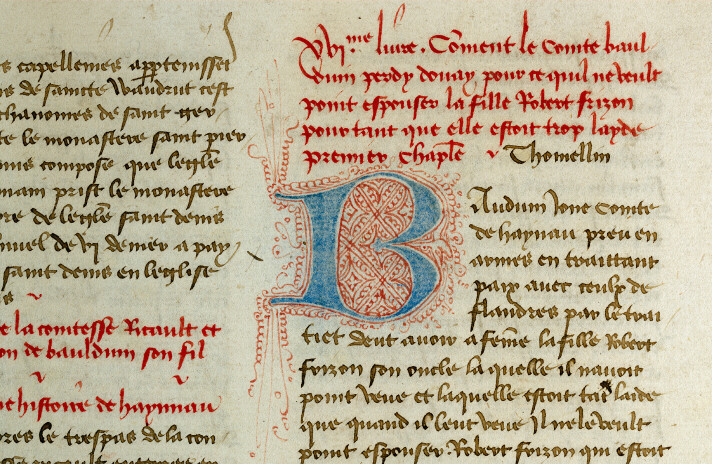 s capellemes appertenisset
is de saincte waudrut cest
chanoines de saint ger
te le monastere saint pier
mis compose que leglẽ
main prist le monastere
re de leglẽ saint denis
nuel de vi denier a pay
saint denis en leglise
s
e la comtesse Ricault et
on de bauldum son fil
e histoire de haynnau
res le trespas de la con
xviᵐᵉ liure. Cõment le Comte baul
duin perdy douay pour ce quil ne veult
point espouser la fille Robert frizon
pour tant que elle estoit trop layde
premier chaplẽ Thomellin
BAudum Jone Comte
de haynau preu en
armes en traittant
paix auec ceulx de
flandres par le trai
tiet deut auoir a fẽme la fille Robert
frizon son oncle la quelle il nauoit
point veue et laquelle estoit tãt laide
que quand il leut veue Il ne le veult
point espouser. Robert frizon qui estoit